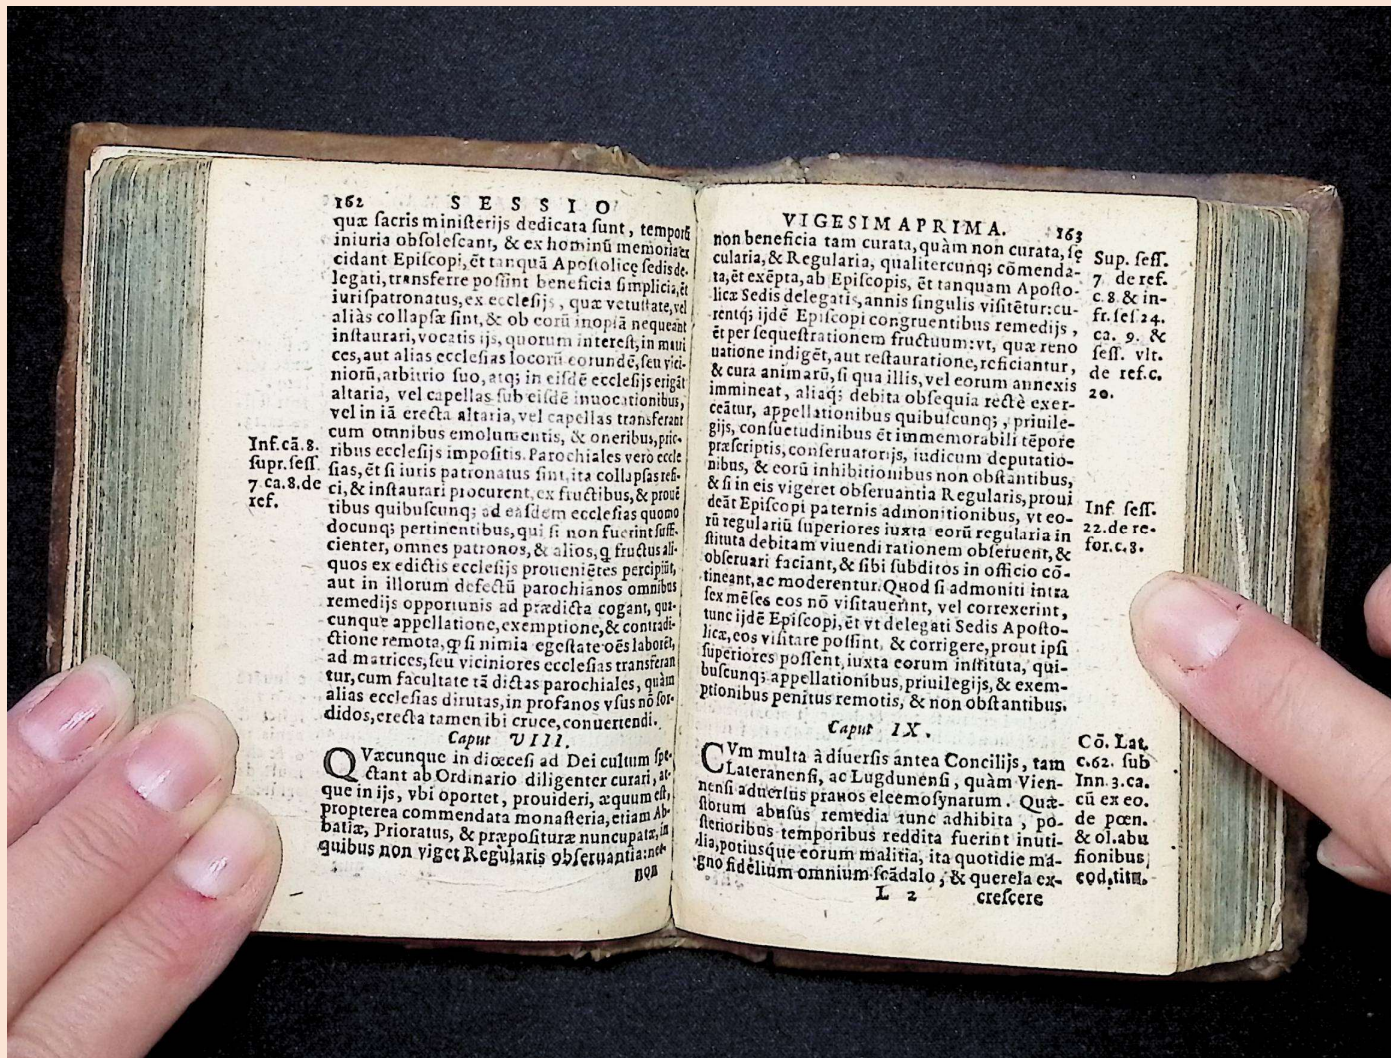 162 SESSIO
quæ sacris ministerijs dedicata sunt, temporū
iniuria obsolescant, & ex hominū memoria ex
cidant Episcopi, ēt tanquā Apostolicę sedis de-
legati, transferre possint beneficia simplicia, ēt
iurispatronatus, ex ecclesijs, quæ vetustate, vel
aliàs collapsæ sint, & ob eorū inopiā nequeant
instaurari, vocatis ijs, quorum interest, in matri
ces, aut alias ecclesias locorū eorundē, seu vici-
niorū, arbitrio suo, atq; in eisdē ecclesijs erigāt
altaria, vel capellas sub eisdē inuocationibus,
vel in iā erecta altaria, vel capellas transferant
cum omnibus emolumentis, & oneribus, prio-
ribus ecclesijs impositis. Parochiales verò eccle
sias, ēt si iuris patronatus sint, ita collapsas refi-
ci, & instaurari procurent, ex fructibus, & prouē
tibus quibuscunq; ad easdem ecclesias quomo
docunq; pertinentibus, qui si non fuerint suffi-
cienter, omnes patronos, & alios, q fructus ali-
quos ex edictis ecclesijs proueniētes percipiūt,
aut in illorum defectū parochianos omnibus
remedijs opportunis ad prædicta cogant, qua-
cunque appellatione, exemptione, & contradi-
ctione remota, qp si nimia egestate oēs laborēt,
ad matrices, seu viciniores ecclesias transferan
tur, cum facultate tā dictas parochiales, quàm
alias ecclesias dirutas, in profanos vsus nō sor-
didos, erecta tamen ibi cruce, conuertendi.
Inf. cā. 8.
supr. sess.
7. ca. 8. de
ref.
Caput VIII.
QVæcunque in diœcesi ad Dei cultum spe-
ctant ab Ordinario diligenter curari, at-
que in ijs, vbi oportet, prouideri, æquum est,
propterea commendata monasteria, etiam Ab-
batiæ, Prioratus, & præposituræ nuncupatæ, in
quibus non viget Regularis obseruantia: nec-
non
VIGESIMAPRIMA. 163
non beneficia tam curata, quàm non curata, sę
cularia, & Regularia, qualitercunq; cōmenda-
ta, ēt exēpta, ab Episcopis, ēt tanquam Aposto-
licæ Sedis delegatis, annis singulis visitētur: cu-
rentq; ijdē Episcopi congruentibus remedijs,
ēt per sequestrationem fructuum: vt, quæ reno
uatione indigēt, aut restauratione, reficiantur,
& cura animarū, si qua illis, vel eorum annexis
immineat, aliaq; debita obsequia rectè exer-
ceātur, appellationibus quibuscunq;, priuile-
gijs, consuetudinibus ēt immemorabili tēpore
præscriptis, conseruatorijs, iudicum deputatio-
nibus, & eorū inhibitionibus non obstantibus,
& si in eis vigeret obseruantia Regularis, proui
deāt Episcopi paternis admonitionibus, vt eo-
rū regulariū superiores iuxta eorū regularia in
stituta debitam viuendi rationem obseruent, &
obseruari faciant, & sibi subditos in officio cō-
tineant, ac moderentur. Quod si admoniti intra
sex mēses eos nō visitauerint, vel correxerint,
tunc ijdē Episcopi, ēt vt delegati Sedis Aposto-
licæ, eos visitare possint, & corrigere, prout ipsi
superiores possent, iuxta eorum instituta, qui-
buscunq; appellationibus, priuilegijs, & exem-
ptionibus penitus remotis, & non obstantibus.
Sup. sess.
7. de ref.
c. 8. & in-
fr. ses. 24.
ca. 9. &
sess. vlt.
de ref. c.
20.
Inf. sess.
22. de re-
for. c. 8.
Caput IX.
CVm multa à diuersis antea Concilijs, tam
Lateranensi, ac Lugdunensi, quàm Vien-
nensi aduersus prauos eleemosynarum. Quæ-
storum abusus remedia tunc adhibita, po-
sterioribus temporibus reddita fuerint inuti-
lia, potiusque eorum malitia, ita quotidie ma-
gno fidelium omnium scādalo, & querela ex-
L 2 crescere
Cō. Lat.
c. 62. sub
Inn. 3. ca.
cū ex eo.
de pœn.
& ol. abu
sionibus
eod. titu.